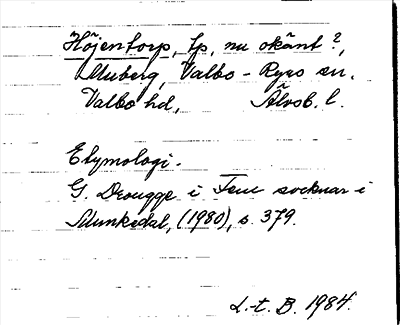 Höjentorp, tp, nu okänt?,
Muberg, Valbo-Ryrs sn.
Valbo hd, Älvsb. l.
Etymologi.
G. Drougge i Fem socknar i
Munkedal, (1980), s. 379.
L.-t. B. 1984.